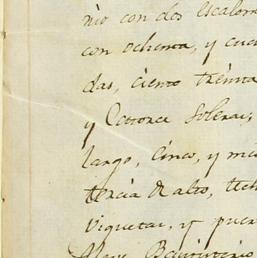 nio con dos Escalon
con ochenta, y cua
das, ciento treinta
y Catorce Soleras,
largo, Cinco, y me
tercia de alto, tech
viguetas, y puer
Baptisterio